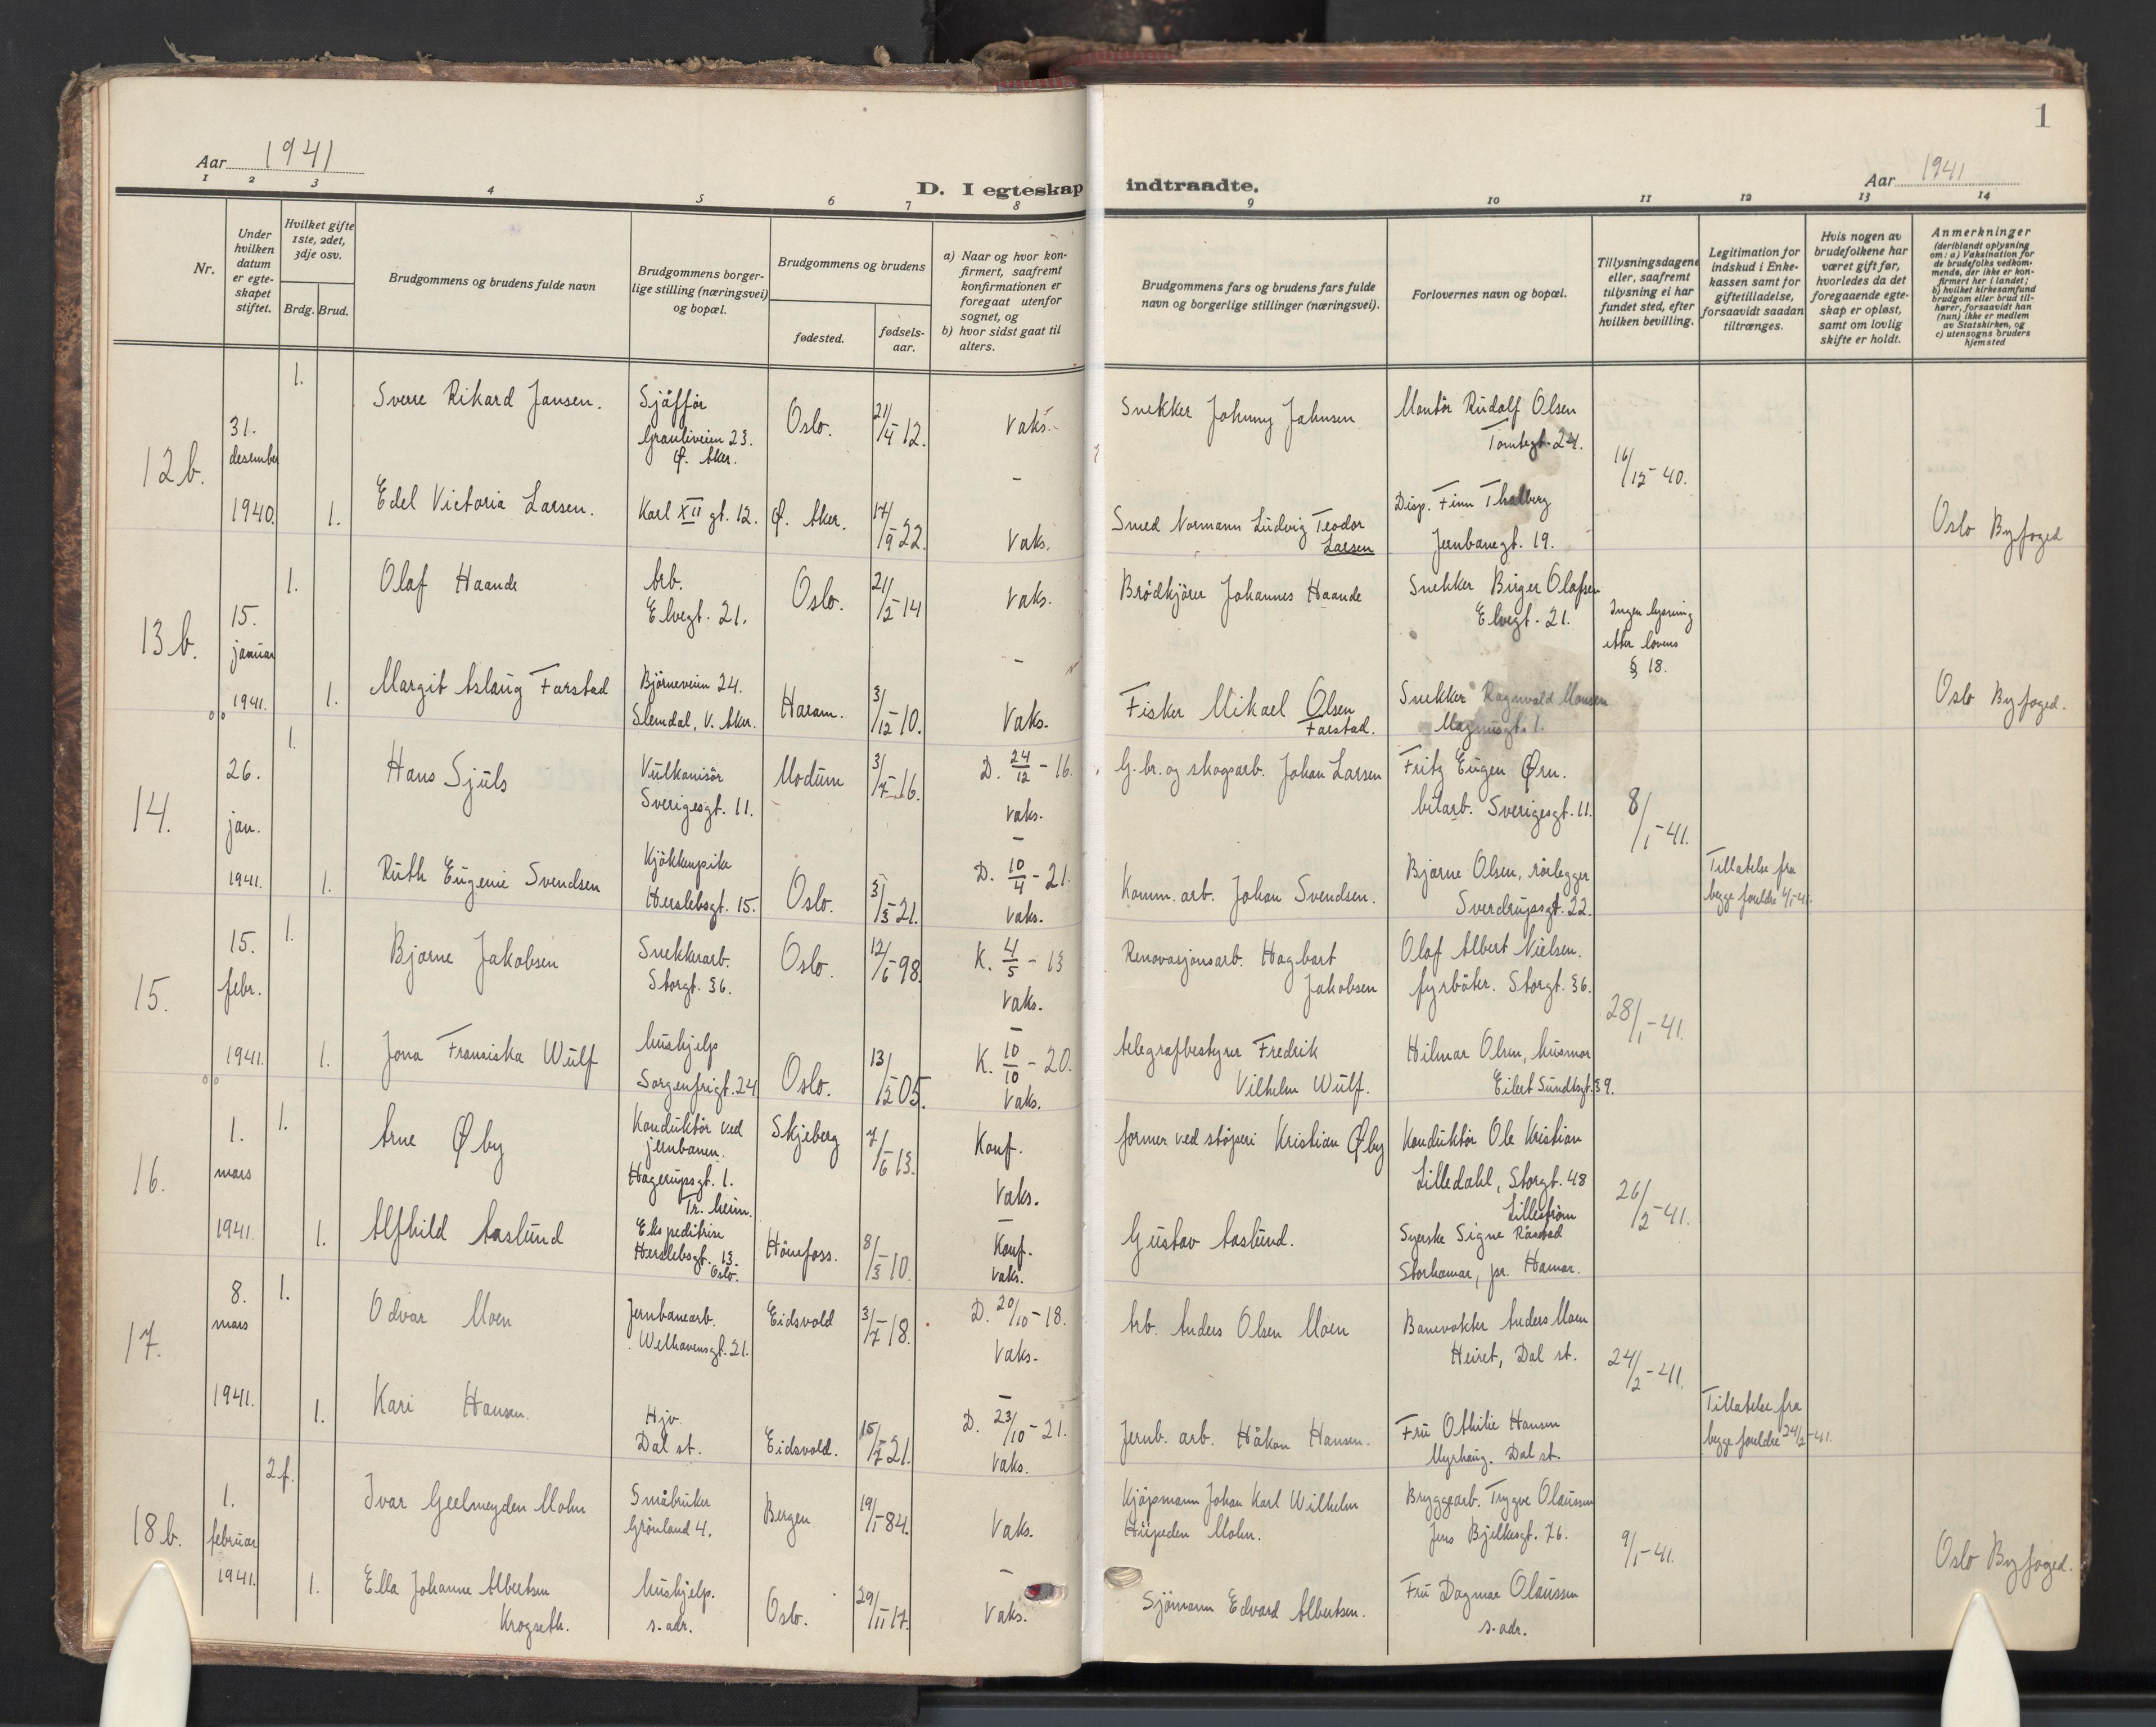 1
Aar 1941
Aar 1941
D. I egteskap indtraadte.
1 2 3 4 5 6 7 8 9 10 11 12 13 14
Nr.
Under hvilken datum er egteskapet stiftet.
Hvilket gifte 1ste, 2det, 3dje osv.
Brdg. Brud.
Brudgommens og brudens fulde navn
Brudgommens borgerlige stilling (næringsvei) og bopæl.
Brudgommens og brudens
fødested.
fødselsaar.
a) Naar og hvor konfirmert, saafremt konfirmationen er foregaat utenfor sognet, og
b) hvor sidst gaat til alters.
Brudgommens fars og brudens fars fulde navn og borgerlige stillinger (næringsvei).
Forlovernes navn og bopæl.
Tillysningsdagene eller, saafremt tillysning ei har fundet sted, efter hvilken bevilling.
Legitimation for indskud i Enkekassen samt for giftetilladelse, forsaavidt saadan tiltrænges.
Hvis nogen av brudefolkene har været gift før, hvorledes da det foregaaende egteskap er opløst, samt om lovlig skifte er holdt.
Anmerkninger
(deriblandt oplysning om: a) Vaksination for de brudefolks vedkommende, der ikke er konfirmert her i landet;
b) hvilket kirkesamfund brudgom eller brud tilhører, forsaavidt han (hun) ikke er medlem av Statskirken, og
c) utensogns bruders hjemsted
12 b.
31. desember 1940.
1.
Sverre Rikard Jansen.
Sjåffør
Granliveien 23.
Ø. Aker.
Oslo.
21/4-12.
Vaks.
Snekker Johnny Jahnsen
Montør Rudolf Olsen
Tomtegt. 24.
16/12-40.
1.
Edel Victoria Larsen.
Karl XII gt. 12.
Ø. Aker.
17/9 22.
Vaks.
Smed Normann Ludvig Teodor
Larsen
Disp. Finn Thalberg
Jernbanegt. 19.
Oslo Byfoged
13 b.
15. januar 1941.
1.
Olaf Haande
Arb.
Elvegt. 21.
Oslo.
21/12-14
Vaks.
Brödkjörer Johannes Haande
Snekker Birger Olafsen
Elvegt. 21.
Ingen lysning
etter lovens
§ 18.
1.
Margit Aslaug Farstad
Björneveien 24.
Slemdal, V. Aker.
Haram.
3/12-10.
Vaks.
Fisker Mikael Olsen
Farstad.
Snekker Ragnvald Monsen
Magnusgt. 1.
Oslo Byfoged.
14.
26. jan. 1941.
1.
Hans Sjuls
Vulkanisör
Sverigesgt. 11.
Modum
3/7-16.
D. 24/12 - 16.
Vaks.
G.br. og skogsarb. Johan Larsen
Fritz Eugen Ørn.
bilarb. Sverigesgt. 11.
8/1-41.
1.
Ruth Eugenie Svendsen
Kjökkenpike
Herslebsgt. 15.
Oslo.
3/3-21.
D. 10/4 - 21.
Vaks.
Komm. arb. Johan Svendsen.
Bjarne Olsen, rörlegger
Sverdrupsgt. 22.
Tillatelse fra
begge foreldre 4/1-41.
15.
15. febr. 1941.
1.
Bjarne Jakobsen
Snekkerarb.
Storgt. 36.
Oslo.
12/6-98.
K. 4/5 - 13
Vaks.
Renovasjonsarb. Hagbart
Jakobsen
Olaf Albert Nielsen.
fyrböter. Storgt. 36.
28/1-41.
1.
Jona Fransiska Wulf
Hushjelp
Sorgenfrigt. 24
Oslo.
13/12 05.
K. 10/10 - 20.
Vaks.
telegrafbestyrer Fredrik
Vilhelm Wulf.
Hilmar Olsen, husmor
Eilert Sundtsgt. 39.
16.
1. mars 1941.
1.
Arne Øby
Konduktör ved
jernbanen.
Hagerupsgt. 1.
Tr.heim.
Skjeberg
7/6 13.
Konf.
Vaks.
former ved stöperi Kristian Øby
Konduktör Ole Kristian
Lilledahl, Storgt. 48
Lillestrøm
26/2-41.
1.
Alfhild Aaslund
Ekspeditrise
Herslebsgt. 13.
Oslo.
Hönefoss.
8/3-10.
Konf.
Vaks.
Gustav Aaslund.
Syerske Signe Råstad
Storhamar, pr. Hamar.
17.
8. mars 1941.
1.
Odvar Moen
Jernbanearb.
Welhavensgt. 21.
Eidsvold
3/7-18.
D. 20/10-18.
Vaks.
Arb. Anders Olsen Moen
Banevokter Anders Moen
Heiret, Dal st.
24/2-41.
1.
Kari Hansen.
Hjv.
Dal st.
Eidsvold.
15/7 21.
D. 23/10-21.
Vaks.
Jernb. arb. Håkon Hansen.
Fru Othilie Hansen
Myrhaug. Dal st.
Tillatelse fra
begge foreldre 24/2-41.
18 b.
1. februar 1941.
2 f.
Ivar Geelmeyden Mohn
Småbruker
Grönland 4.
Bergen
19/1-84.
Vaks.
Kjöpmann Johan Karl Wilhelm
Hüpeden Mohn.
Bryggearb. Trygve Olaussen
Jens Bjelkesgt. 76.
9/1-41.
1.
Ella Johanne Albertsen
Krogseth.
Hushjelp.
s. adr.
Oslo.
29/11 17.
Vaks.
Sjömann Edvard Albertsen.
Fru Dagmar Olaussen
s. adr.
Oslo Byfoged.